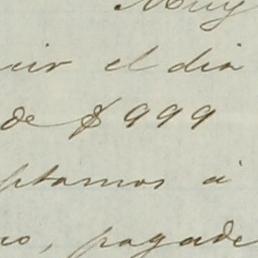 Muy
cir el dia
de $ 999
ptamos á
no, pagade